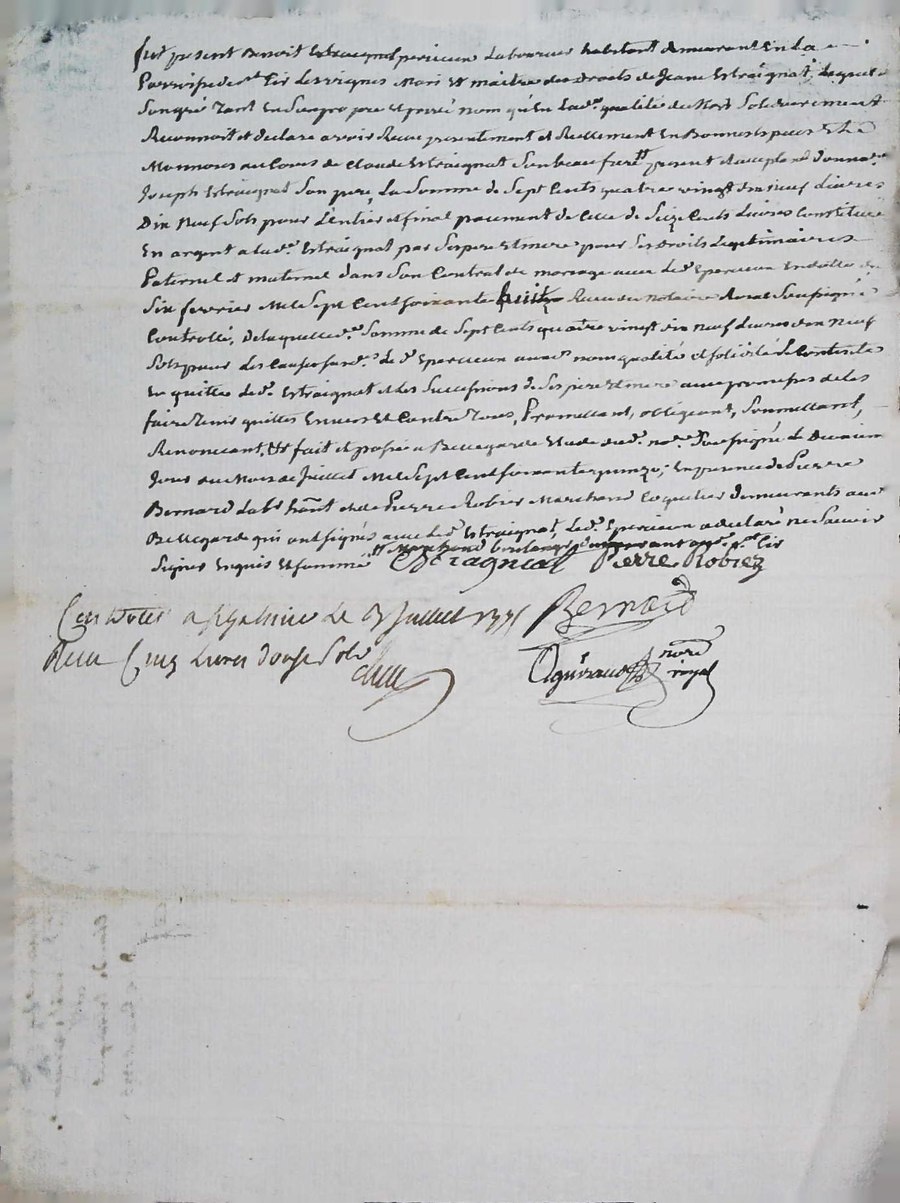 fut present Benoit Epercieux Laboureur habitant demeurant En La
Parroisse de st Cir Les vignes Mari Et maitre des droits de Jeane Estraignat, Lequel
De son gré tant En Son propre Et privé nom qu'En Lad.e qualité
Reconnoit et declare avoir Receu presentement et Reellement En Bonnes Especes Et de
Monnoies au Cours de Claude Estraignat Son beau frere present
Joseph Estraignat Son pere, La Somme de Sept Cents quatre vingt dix neuf Livres
Dix Neuf Sols pour L'entier et final paiement de Celle de Seize Cents Livres Constituée
En argent a lad.e Estraignat par Ses pere Et mere pour Ses droits Legitimaires
Paternel et maternel dans Son Contrat de mariage avec Led. Epercieux
Six fevrier Mil Sept Cent Soixante huit Receu du Notaire Royal Soussigné
Controllé, De laquelle d.e Somme de Sept Cents quatre vingt dix neuf Livres dix neuf
Sols pour Les Causes Led. Epercieux aux d. nom qualité et Solidité Se Contente
En quitte Led. Estraignat et Les Successions de Ses pere Et mere avec promesses de Les
faire Tenir quittes Envers Et Contre Tous, Promettant, obligeant, Soumettant,
Renoncant, &a fait et passé a Bellegarde Etude du d. no.re Soussigné Le Deuxieme
Jour du Mois de Juillet Mil Sept Cent Soixante quinze; En presence de Pierre
Bernard Lab.r hant et de Pierre Robier Marchand Coquetier demeurants aud.
Bellegarde qui ont signés avec Led. Estraignat, Led. Epercieux a declaré ne Scavoir
Signer Enquis Et Sommé
Marchand boulanger demeurant st Cir
Estragniat Pierre Robiez
Controllé a st Galmier Le Juillet 1775
Bernard
Receu Cinq Livres douze Sols
nore
royal